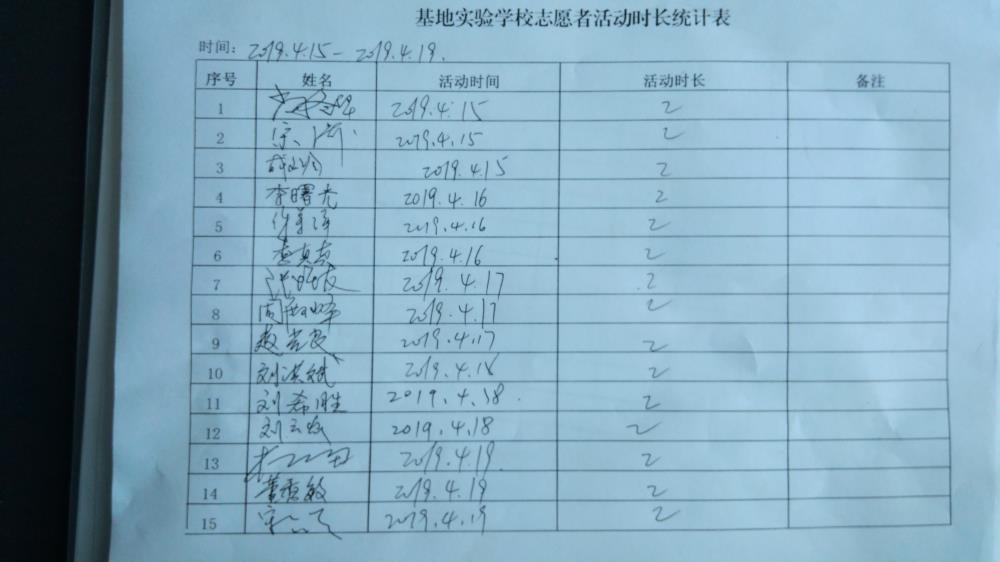 基地实验学校志愿者活动时长统计表
时间：2019.4.15-2019.4.19.
序号 姓名 活动时间 活动时长 备注
1 2019.4.15 2
2 2019.4.15 2
3 2019.4.15 2
4 李曙光 2019.4.16 2
5 2019.4.16 2
6 2019.4.16 2
7 2019.4.17 2
8 2019.4.17 2
9 2019.4.17 2
10 刘洪斌 2019.4.18 2
11 刘希胜 2019.4.18. 2
12 刘云 2019.4.18 2
13 2019.4.19. 2
14 董香敏 2019.4.19 2
15 2019.4.19 2